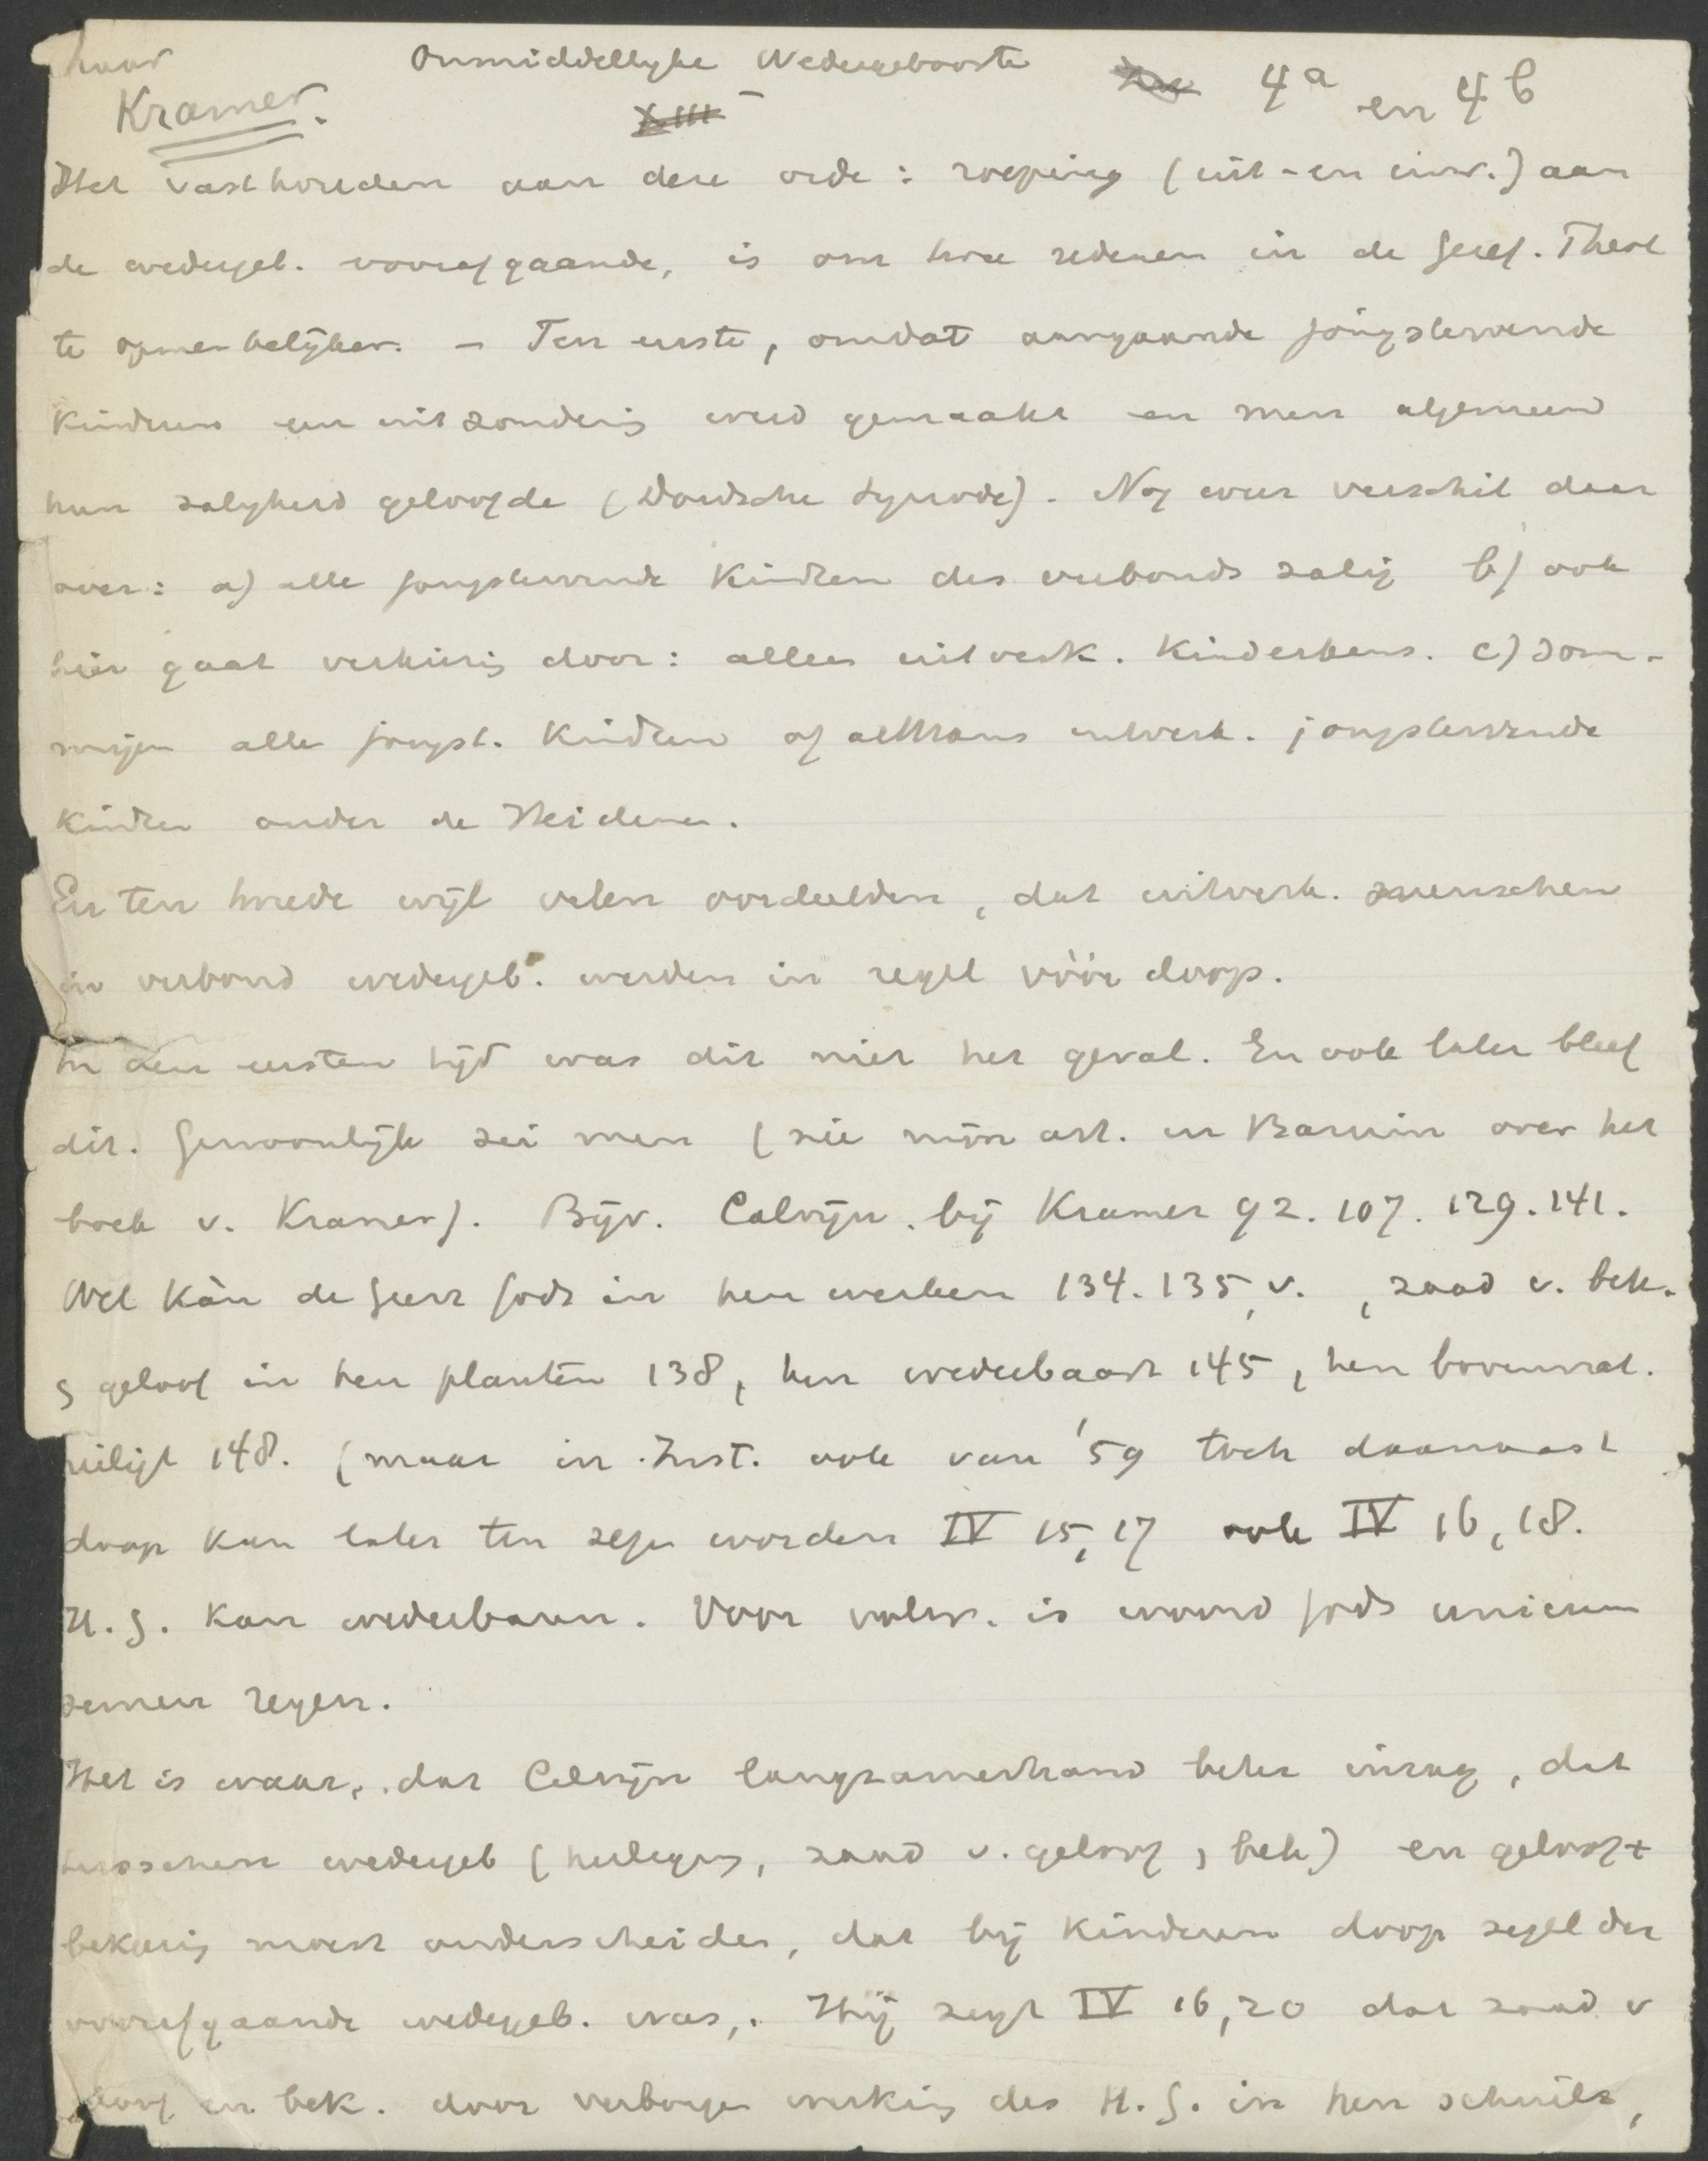 naar Onmiddellijke Wedergeboorte 4a en 4b
Kramer. XIII
Het vasthouden aan deze orde: roeping (uit- en inw.) aan
de wedergeb. voorafgaande, is om twee redenen in de Geref. Theol
te opmerkelijker. – Ten eerste, omdat aangaande jongstervende
Kinderen een uitzondering werd gemaakt en men algemeen
hun zaligheid geloofde (Dordsche Synode). Nog weer verschil daar
over: a) alle jongstervende Kindren des verbonds zalig b) ook
hier gaat verkiezing door: alleen uitverk. Kinderkens. c) Som-
migen alle jongst. Kindren of althans uitverk. jongstervende
Kindren onder de Heidenen.
En ten tweede wijl velen oordeelden, dat uitverk. menschen
in verbond wedergeb. werden in regel vóór doop.
In den eersten tijd was dit niet het geval. En ook later bleef
dit. Gewoonlijk zei men (zie mijn art. in Bazuin over het
boek v. Kramer). Bijv. Calvijn. bij Kramer 92. 107. 129. 141.
Wel kàn de Geest Gods in hen werken 134. 135, v. , zaad v. bek.
& geloof in hen planten 138, hen wederbaart 145, hen bovennat.
heiligt 148. (maar in Inst. ook van '59 toch daarnaast
doop kan later ten zegen worden IV 15, 17 ook IV 16, 18.
H. G. kan wederbaren. Voor volw. is woord Gods unicum
semen regen.
Het is waar, dat Calvijn langzamerhand beter inzag, dat
tusschen wedergeb (heiliging, zaad v. geloof, bek) en geloof +
bekeering moest onderscheiden, dat bij Kinderen doop zegel der
voorafgaande wedergeb. was,. Hij zegt IV 16, 20 dat zaad v
geloof en bek. door verborgen werking des H. G. in hen schuilt,